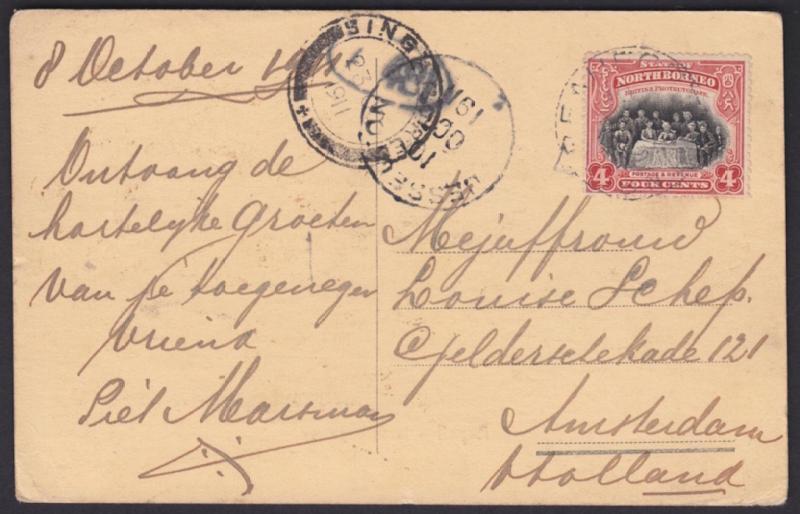 8 October 191
Ontvang de
hartelijke Groeten
van je toegenegen
vriend
Piet Marsman
SINGAPORE
23
NO
1911
JESSEL
10
OC
191
STATE OF
NORTH BORNEO
BRITISH PROTECTORATE
4
POSTAGE & REVENUE
4
FOUR CENTS
Mejuffrouw
Louise Schep.
Gelderschekade 121
Amsterdam
Holland